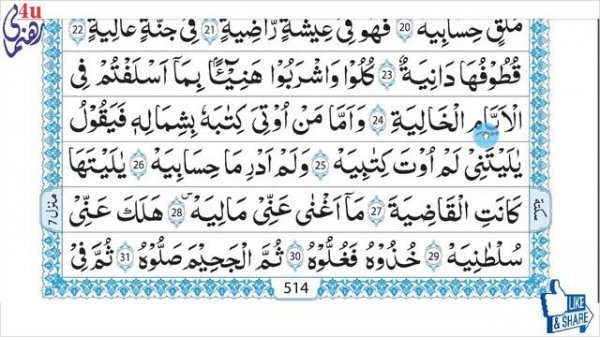 4u
رهنمای
مُلٰقٍ حِسَابِیَهْ ﴿20﴾ فَهُوَ فِیْ عِیْشَةٍ رَّاضِیَةٍ ﴿21﴾ فِیْ جَنَّةٍ عَالِیَةٍ ﴿22﴾
قُطُوْفُهَا دَانِیَةٌ ﴿23﴾ كُلُوْا وَاشْرَبُوْا هَنِیْٓــٴًـۢا بِمَاۤ اَسْلَفْتُمْ فِی
الْاَیَّامِ الْخَالِیَةِ ﴿24﴾ وَاَمَّا مَنْ اُوْتِیَ كِتٰبَهٗ بِشِمَالِهٖ فَیَقُوْلُ
یٰلَیْتَنِیْ لَمْ اُوْتَ كِتٰبِیَهْ ﴿25﴾ وَلَمْ اَدْرِ مَا حِسَابِیَهْ ﴿26﴾ یٰلَیْتَهَا
كَانَتِ الْقَاضِیَةَ ﴿27﴾ مَاۤ اَغْنٰی عَنِّیْ مَالِیَهْ ۚ ﴿28﴾ هَلَكَ عَنِّیْ
سُلْطٰنِیَهْ ﴿29﴾ خُذُوْهُ فَغُلُّوْهُ ﴿30﴾ ثُمَّ الْجَحِیْمَ صَلُّوْهُ ﴿31﴾ ثُمَّ فِیْ
منزل 7
سكتة
514
LIKE
& SHARE